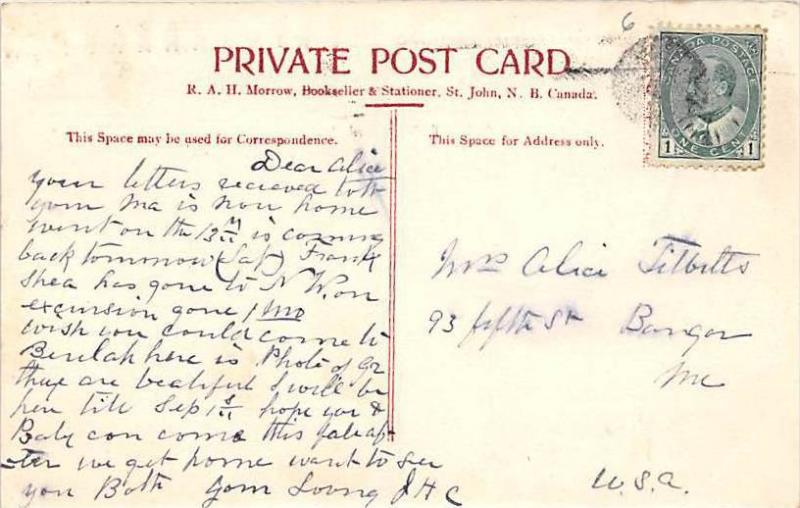 6
PRIVATE POST CARD
R. A. H. Morrow, Bookseller & Stationer, St. John, N. B. Canada.
CANADA POSTAGE
ONE CENT
1 1
This Space may be used for Correspondence.
This Space for Address only.
Dear Alice
your letters recieved
your Ma is now home
went on the 13th is coming
back tommorow (Sat) Frank
Shea has gone to N on
excursion gone 1 Mo
wish you could come to
Beulah here is Photo of
they are beatiful I will be
here till Sep 1st hope you &
Baby can come this fale af
ter we get home want to see
you Both your Loving J H C
Mrs Alice Tibbitts
93 fifth St Bangor
Me
U.S.A.